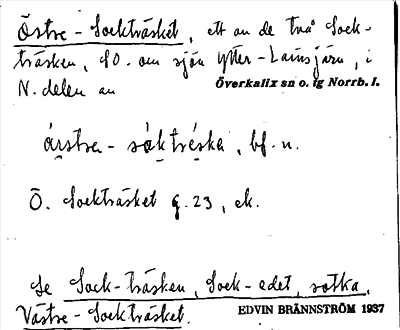 Östre-Sockträsket, ett av de två Sock-
träsken, SO. om sjön Ytter-Lainsjärv, i
N. delen av Överkalix sn o. tg Norrb. l.
årstre- såkträska, bf. n.
Ö. Sockträsket g. 23, ek.
Se Sock-träsken, Sock-edet, sotka,
Västre-Sockträsket. EDVIN BRÄNNSTRÖM 1937